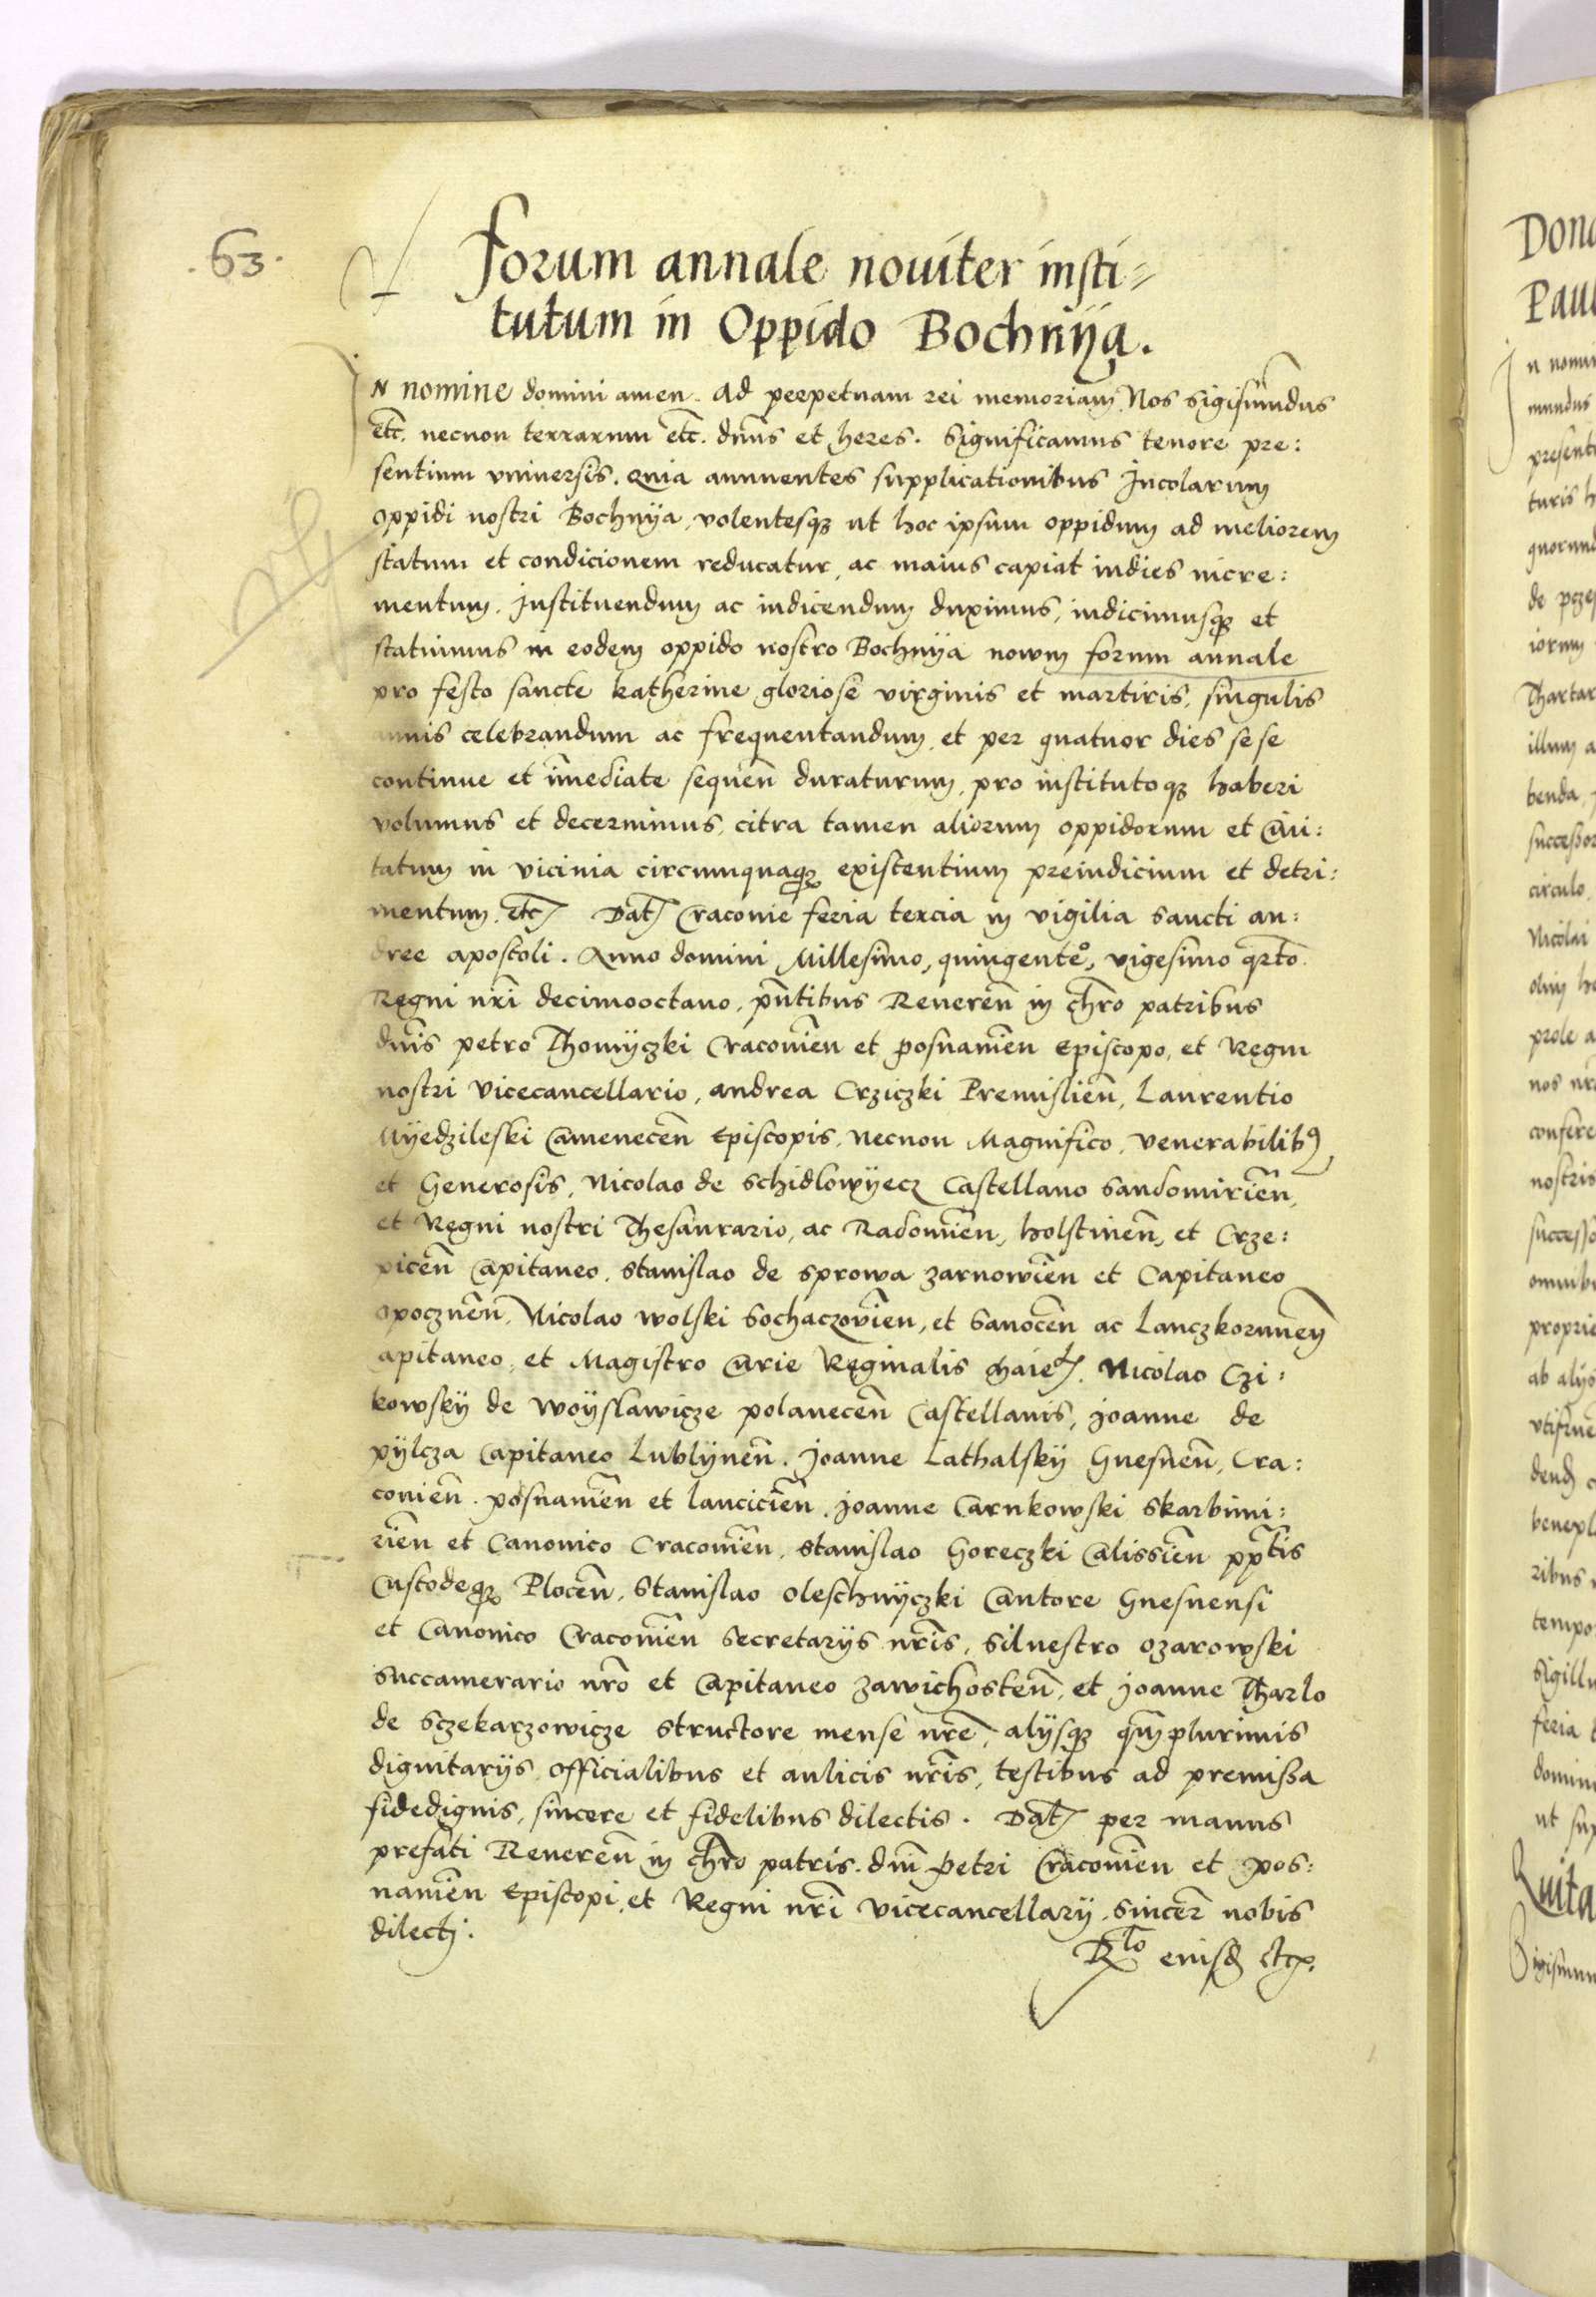 .63.
Forum annale noviter insti=
tutum in Oppido Bochnÿa.
IN nomine domini amen. Ad perpetuam rei memoriam Nos Sigismundus
etc. necnon terrarum etc. dn̄us et heres. Significamus tenore pre:
sentium universis. Quia annuentes supplicationibus Incolarum
oppidi nostri Bochnÿa, volentesqꝫ ut hoc ipsum oppidum ad meliorem
statum et condicionem reducatur, ac maius capiat indies incre:
mentum. Instituendum ac indicendum duximus, indicimusqꝫ et
statuimus in eodem oppido nostro Bochnÿa nowm forum annale
pro festo sancte Katherine gloriose virginis et martiris, singulis
annis celebrandum ac frequentandum, et per quatuor dies sese
continue et im̄ediate sequen̄ duraturum, pro institutoqꝫ haberi
volumus et decernimus, citra tamen aliorum oppidorum et Civi:
tatum in vicinia circumquaqꝫ existentium preiudicium et detri:
mentum. etc. Dat. Cracovie feria tercia in vigilia Sancti an:
dree apostoli. Anno domini Millesimo, quingenteᵒ, vigesimo qrto.
Regni nr̄i decimooctavo, pn̄tibus Reveren̄ in chr̄o patribus
dn̄is petro Thomÿczki Cracovien̄ et posnanien̄ Episcopo, et Regni
nostri vicecancellario, andrea Crziczki Premislien̄, Laurentio
Mÿedzileski Camenecen̄ Episcopis, Necnon Magnifico, venerabilibꝰ
et Generosis, Nicolao de Schidlowÿecz Castellano Sandomirien̄,
et Regni nostri Thesaurario, ac Radomien̄, holstinen̄, et Crze:
picen̄ Capitaneo, Stanislao de Sprowa zarnowien̄ et Capitaneo
opocznen̄, Nicolao wolski Sochaczovien̄, et Sanocen̄ ac Lanczkorunen̄
apitaneo, et Magistro Curie Reginalis Maietꝭ. Nicolao Czi:
kowskÿ de Woÿslawicze polanecen̄ Castellanis, Joanne de
pÿlcza Capitaneo Lublÿnen̄. Joanne Lathalskÿ Gnesnen̄, Cra:
covien̄. posnanien̄ et lancicien̄, Joanne Carnkowski Skarbimi:
rien̄ et Canonico Cracovien̄, Stanislao Goreczki Calissien̄ pp̄tis
Custodeqꝫ Plocen̄, Stanislao oleschnÿczki Cantore Gnesnensi
et Canonico Cracovien̄ Secretarÿs nr̄is, Silvestro ozarowski
Succamerario nr̄o et Capitaneo zawichosten̄, et Joanne Tharlo
de Sczekarzowicze structore mense nr̄e, alÿsqꝫ qm̄plurimis
dignitarÿs officialibus et aulicis nr̄is, testibus ad premissa
fidedignis, sincere et fidelibus dilectis. Dat. per manus
prefati Reveren̄ in chr̄o patris. dn̄i petri Cracovien̄ et pos:
nanien̄ Episcopi, et Regni nr̄i vicecancellarÿ, sincer̄ nobis
dilecti.
Rᵗᵒ eiusd̄ etc.